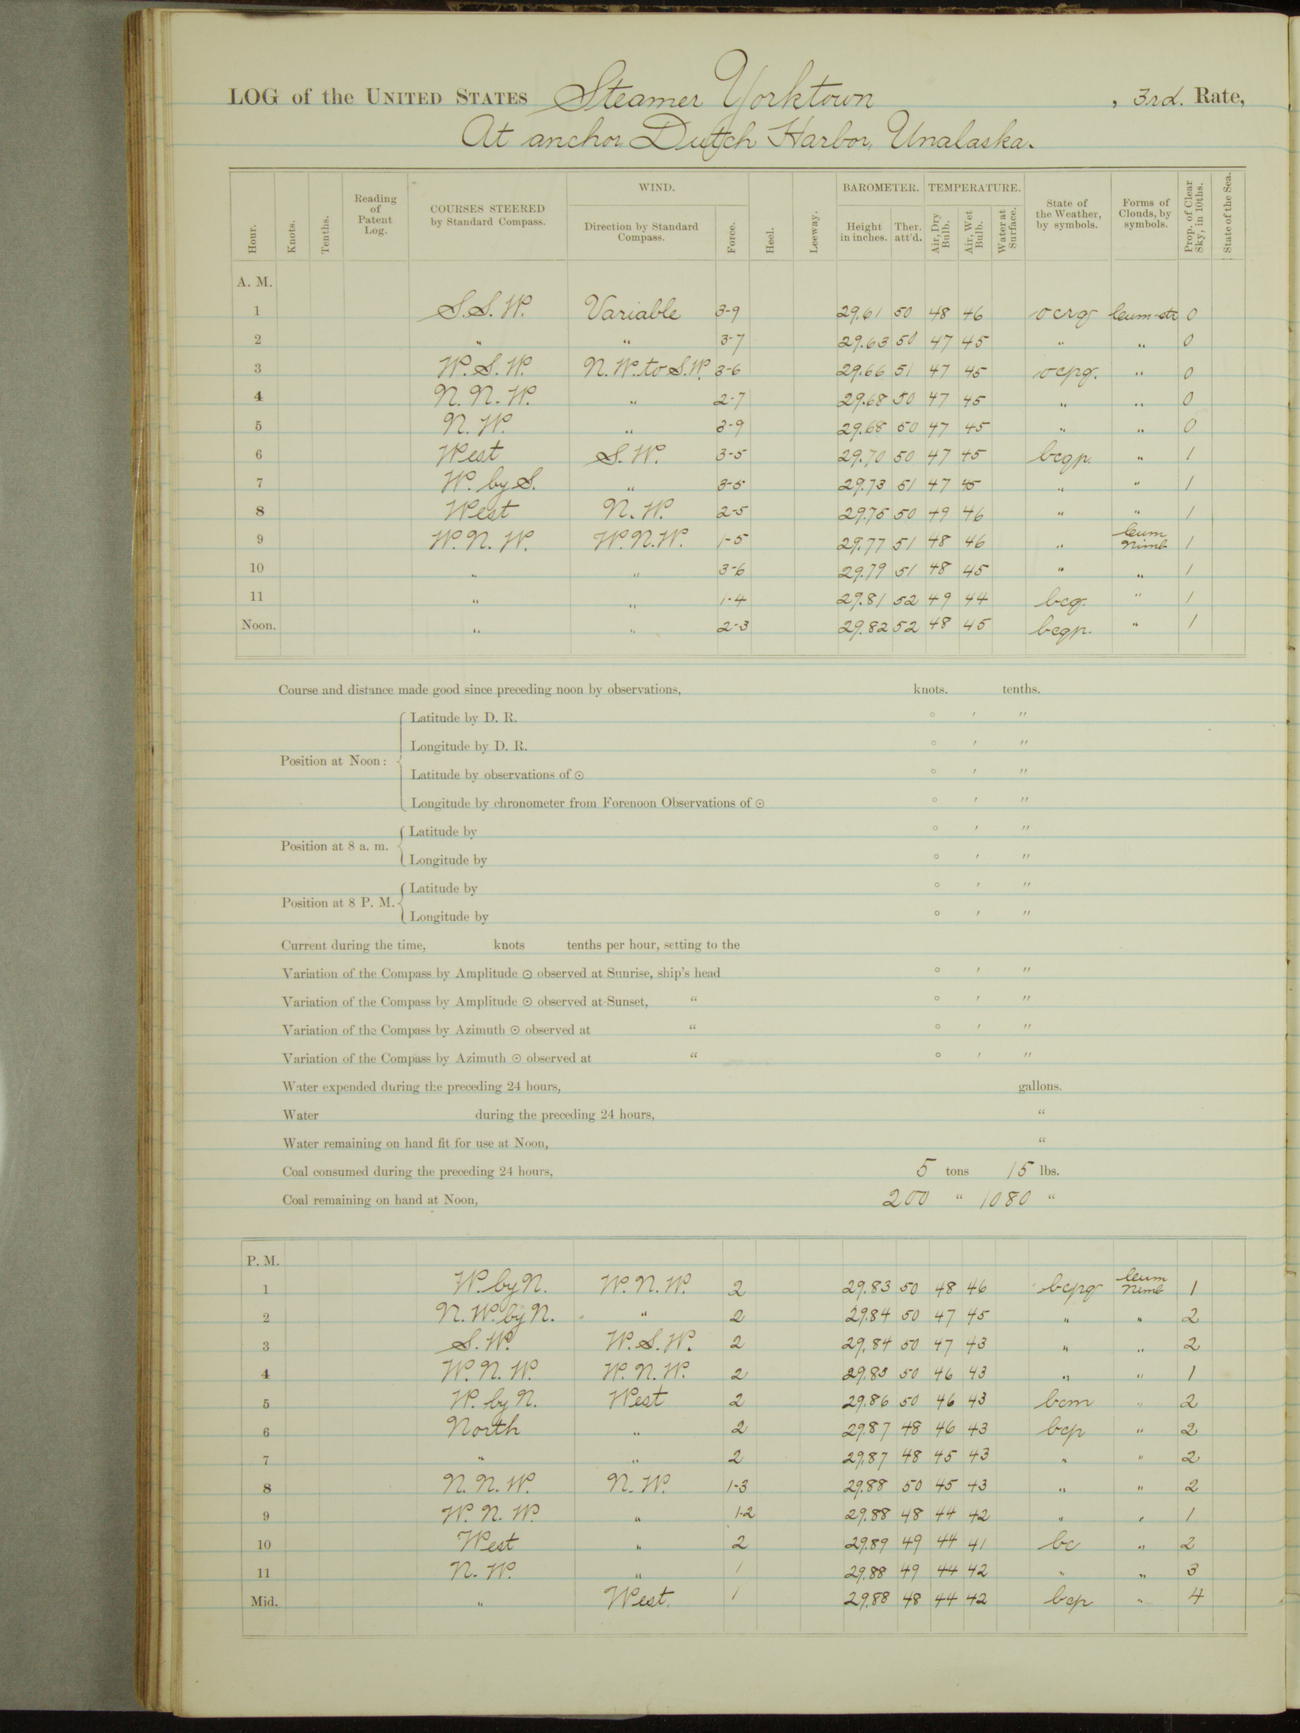 LOG of the UNITED STATES Steamer Yorktown , 3rd. Rate,
At anchor Dutch Harbor, Unalaska.
Hour. Knots. Tenths. Reading of Patent Log. COURSES STEERED by Standard Compass. WIND. Direction by Standard Compass. Force. Heel. Leeway. BAROMETER. Height in inches. Ther. att'd. TEMPERATURE. Air, Dry Bulb. Air, Wet Bulb. Water at Surface. State of the Weather, by symbols. Forms of Clouds, by symbols. Prop. of Clear Sky, in 10ths. State of the Sea.
A. M.
1 S.S.W. Variable 3-9 29.61 50 48 46 ocrq cum-str 0
2 " " 3-7 29.63 50 47 45 " " 0
3 W.S.W. N.W. to S.W. 3-6 29.66 51 47 45 ocpq. " 0
4 N.N.W. " 2-7 29.68 50 47 45 " " 0
5 N.W. " 3-9 29.68 50 47 45 " " 0
6 West S.W. 3-5 29.70 50 47 45 bcqp. " 1
7 W. by S. " 3-5 29.73 51 47 45 " " 1
8 West N.W. 2-5 29.75 50 49 46 " " 1
9 W.N.W. W.N.W. 1-5 29.77 51 48 46 " Cum Nimb 1
10 " " 3-6 29.79 51 48 45 " " 1
11 " " 1-4 29.81 52 49 44 bcq. " 1
Noon. " " 2-3 29.82 52 48 45 bcqp. " 1
Course and distance made good since preceding noon by observations, knots. tenths.
Position at Noon: Latitude by D. R. ° ' "
Longitude by D. R. ° ' "
Latitude by observations of ⊙ ° ' "
Longitude by chronometer from Forenoon Observations of ⊙ ° ' "
Position at 8 a. m. Latitude by ° ' "
Longitude by ° ' "
Position at 8 P. M. Latitude by ° ' "
Longitude by ° ' "
Current during the time, knots tenths per hour, setting to the
Variation of the Compass by Amplitude ⊙ observed at Sunrise, ship's head ° ' "
Variation of the Compass by Amplitude ⊙ observed at Sunset, " ° ' "
Variation of the Compass by Azimuth ⊙ observed at " ° ' "
Variation of the Compass by Azimuth ⊙ observed at " ° ' "
Water expended during the preceding 24 hours, gallons.
Water during the preceding 24 hours, "
Water remaining on hand fit for use at Noon, "
Coal consumed during the preceding 24 hours, 5 tons 15 lbs.
Coal remaining on hand at Noon, 200 " 1080 "
P. M.
1 W. by N. W.N.W. 2 29.83 50 48 46 bcpq Cum Nimb 1
2 N.W. by N. " 2 29.84 50 47 45 " " 2
3 S.W. W.S.W. 2 29.84 50 47 43 " " 2
4 W.N.W. W.N.W. 2 29.85 50 46 43 " " 1
5 W. by N. West 2 29.86 50 46 43 bcm " 2
6 North " 2 29.87 48 46 43 bcp " 2
7 " " 2 29.87 48 45 43 " " 2
8 N.N.W. N.W. 1-3 29.88 50 45 43 " " 2
9 W.N.W. " 1-2 29.88 48 44 42 " " 1
10 West " 2 29.89 49 44 41 bc " 2
11 N.W. " 1 29.88 49 44 42 " " 3
Mid. " West. 1 29.88 48 44 42 bcp " 4